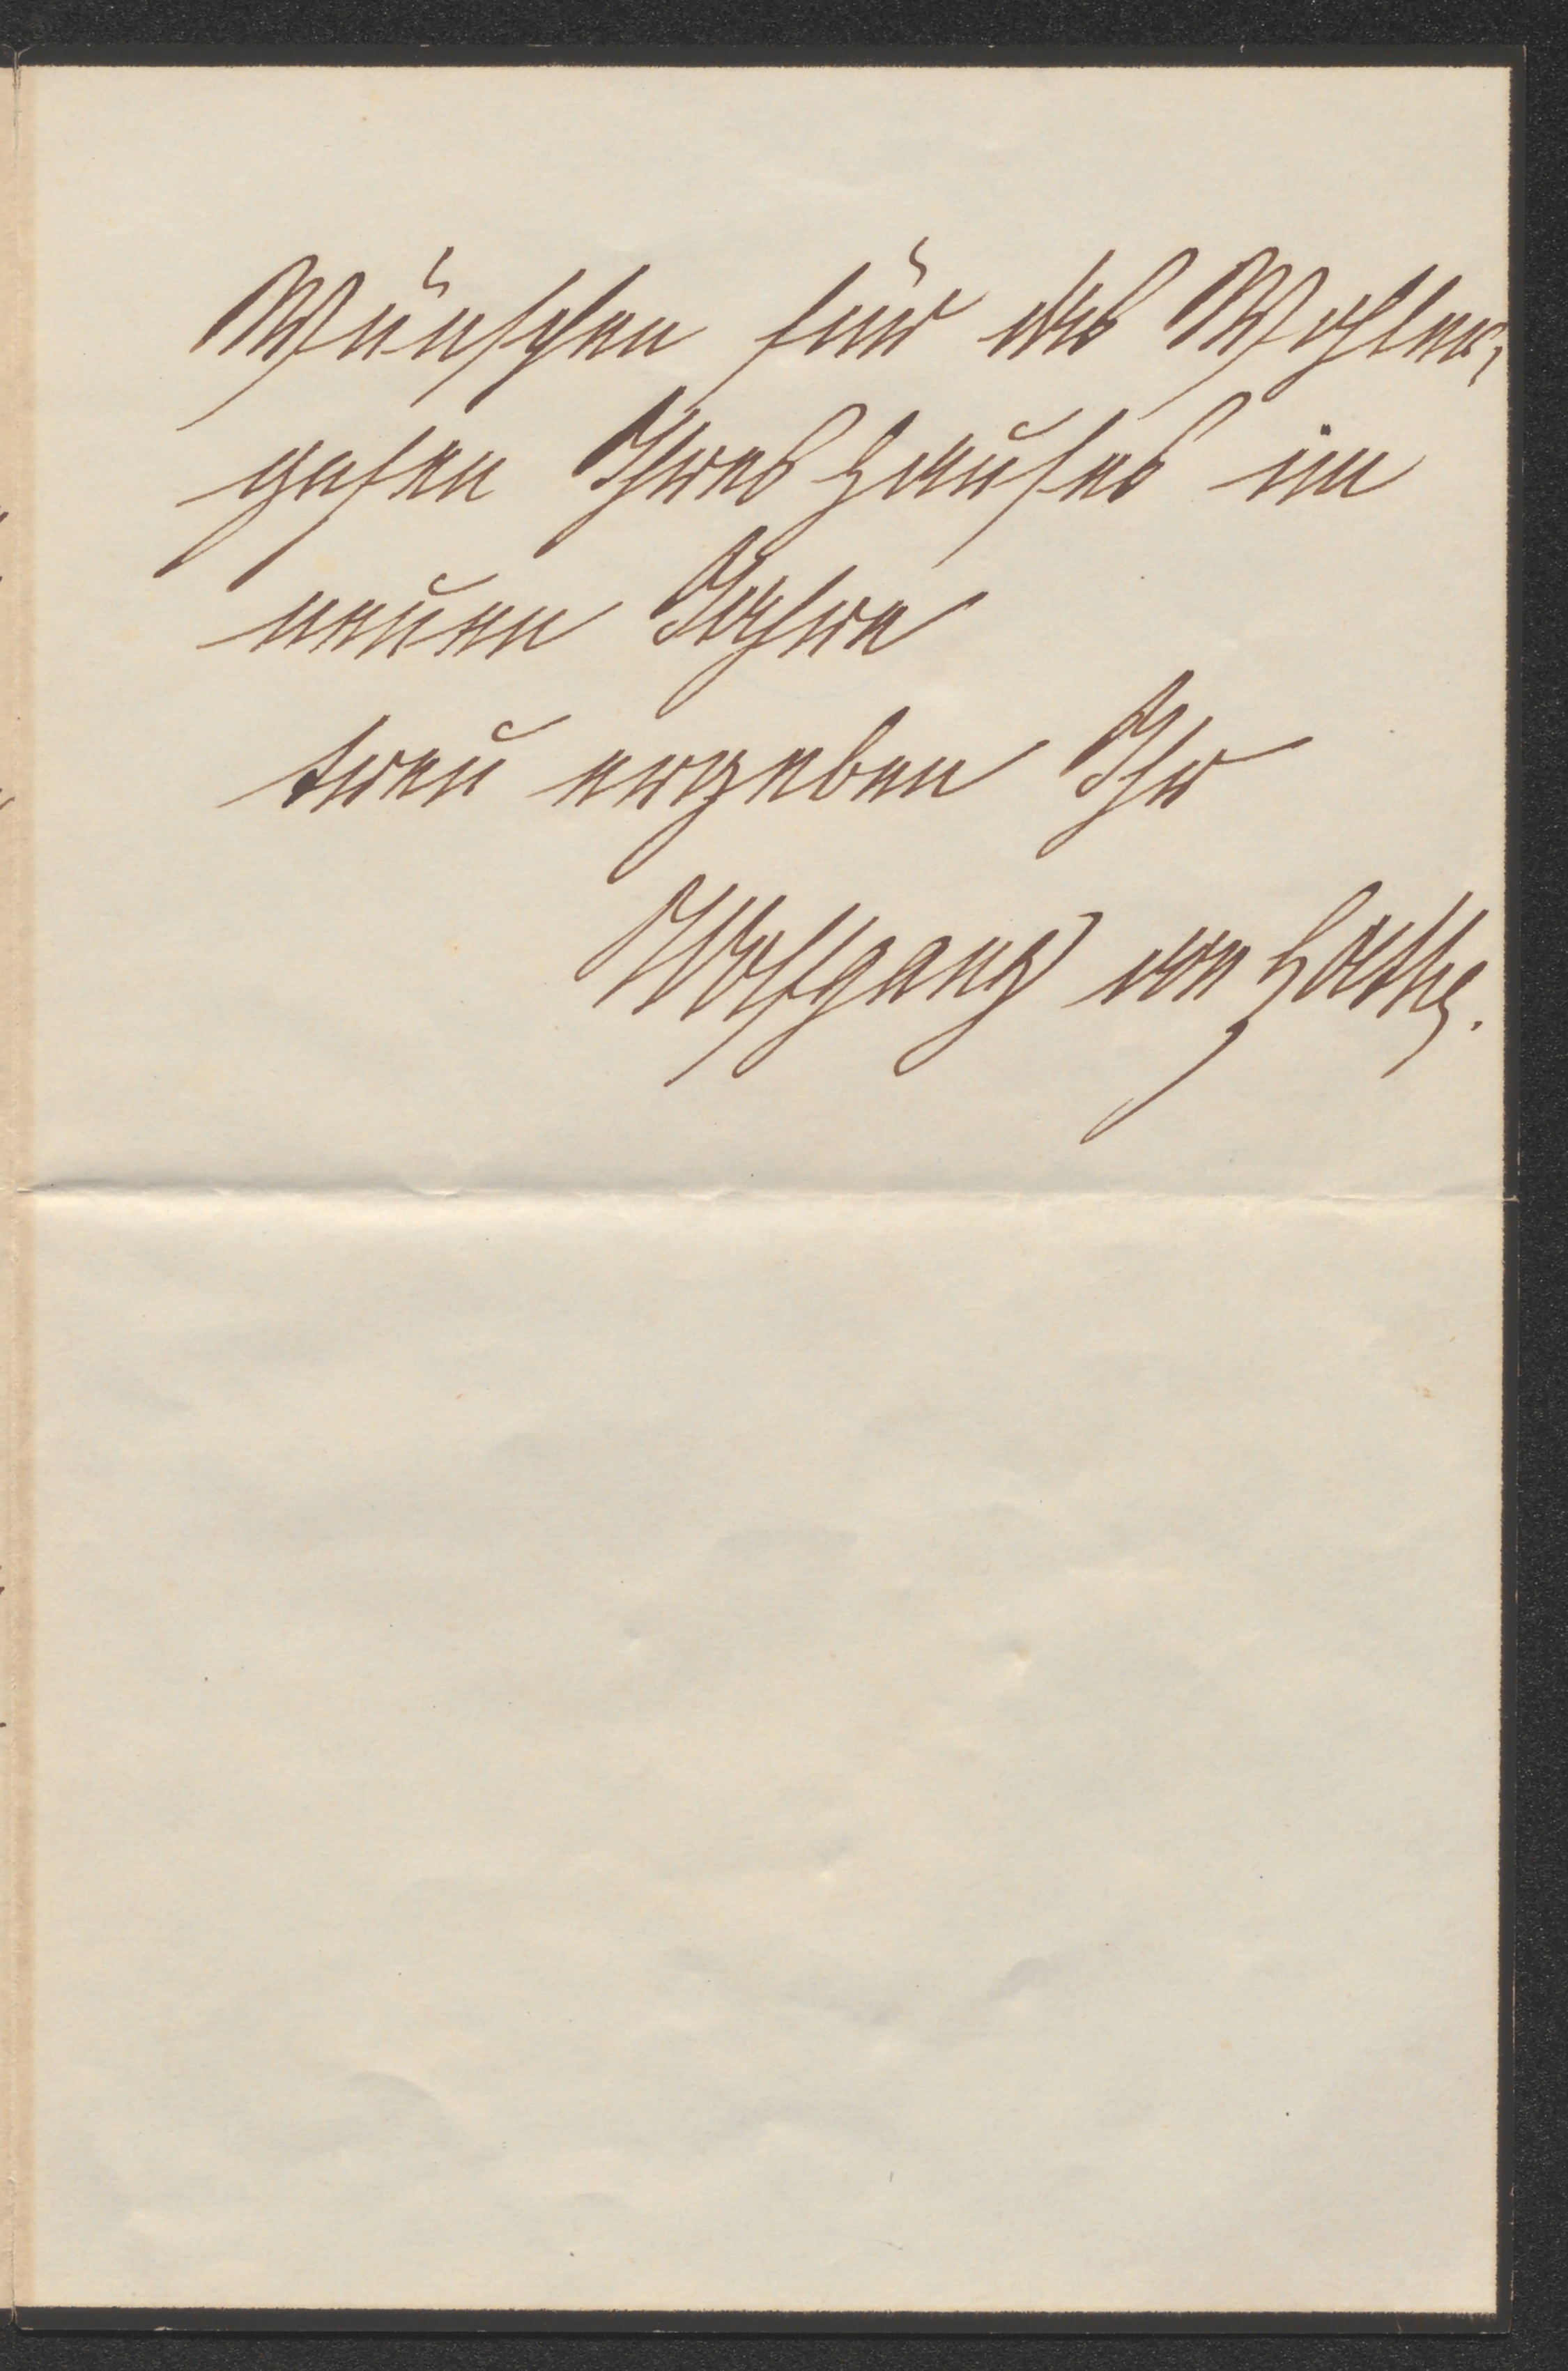 Wünschen für das Wohler-
gehen Ihres Hauses im
neuen Jahre
treu ergeben Ihr
Wolfgang von Goethe.